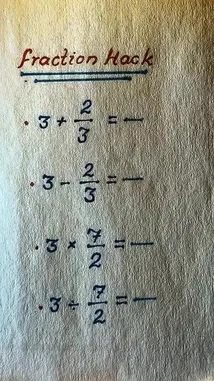 Fraction Hack
• 3 + 2/3 = —
• 3 - 2/3 = —
• 3 × 7/2 = —
• 3 ÷ 7/2 = —